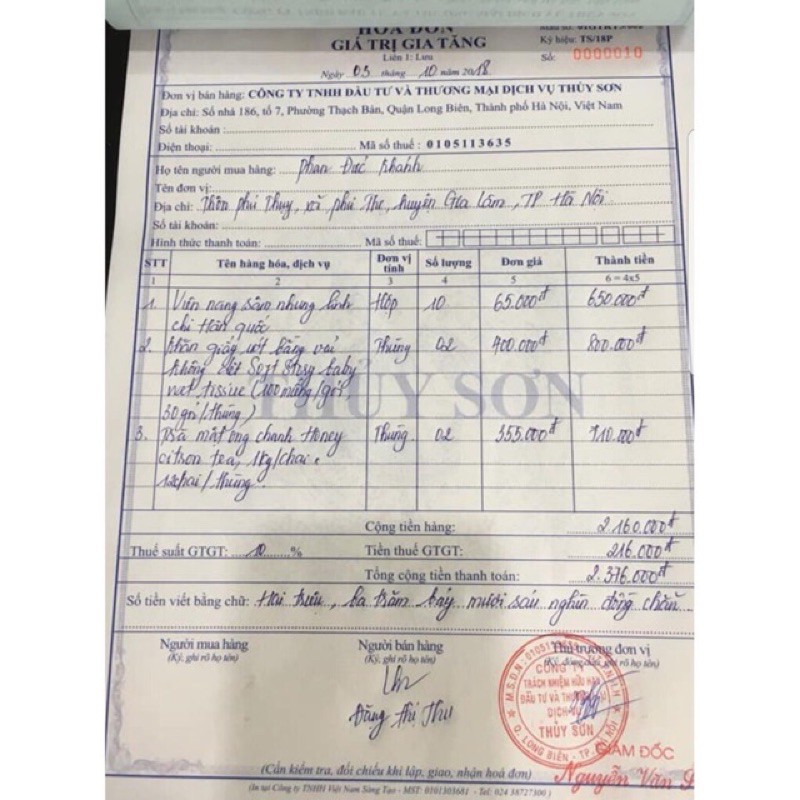 HÓA ĐƠN
GIÁ TRỊ GIA TĂNG
Liên 1: Lưu
Ngày 03 tháng 10 năm 2018
Ký hiệu: TS/18P
Số: 0000010
Đơn vị bán hàng: CÔNG TY TNHH ĐẦU TƯ VÀ THƯƠNG MẠI DỊCH VỤ THỦY SƠN
Địa chỉ: Số nhà 186, tổ 7, Phường Thạch Bàn, Quận Long Biên, Thành phố Hà Nội, Việt Nam
Số tài khoản:
Điện thoại: Mã số thuế: 0105113635
Họ tên người mua hàng: Phan Đức Khánh
Tên đơn vị:
Địa chỉ: Thôn phú Thụy, xã phú Thị, huyện Gia Lâm, TP Hà Nội
Số tài khoản:
Hình thức thanh toán: Mã số thuế:
STT Tên hàng hóa, dịch vụ Đơn vị tính Số lượng Đơn giá Thành tiền
1 2 3 4 5 6 = 4x5
1. Viên nang sâm nhung linh Hộp 10 65.000đ 650.000đ
chi Hàn quốc
2. Khăn giấy ướt bằng vải Thùng 02 400.000đ 800.000đ
không dệt baby
wet tissue (100 mảng/gói,
30 gói/thùng)
3. Trà mật ong chanh Honey Thùng 02 355.000đ 710.000đ
citron tea, 1kg/chai.
12chai/thùng.
THỦY SƠN
Cộng tiền hàng: 2.160.000đ
Thuế suất GTGT: 10 % Tiền thuế GTGT: 216.000đ
Tổng cộng tiền thanh toán: 2.376.000đ
Số tiền viết bằng chữ: Hai triệu, ba trăm bảy mươi sáu nghìn đồng chẵn
Người mua hàng Người bán hàng Thủ trưởng đơn vị
(Ký, ghi rõ họ tên) (Ký, ghi rõ họ tên) (Ký, đóng dấu, ghi rõ họ tên)
Đặng Thị Thu
CÔNG TY
TRÁCH NHIỆM HỮU HẠN
ĐẦU TƯ VÀ THƯƠNG MẠI
DỊCH VỤ
THỦY SƠN
Q. LONG BIÊN - TP. HÀ NỘI
GIÁM ĐỐC
Nguyễn Văn
(Cần kiểm tra, đối chiếu khi lập, giao, nhận hoá đơn)
(In tại Công ty TNHH Việt Nam Sáng Tạo - MST: 0101303681 - Tel: 024 38727300)